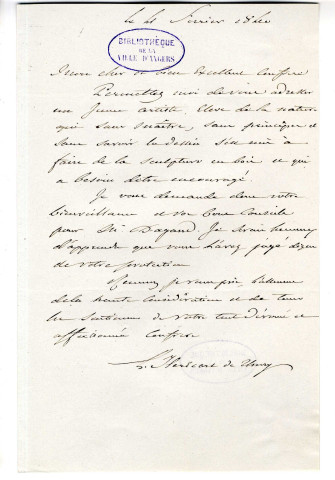 Février 1840
BIBLIOTHÈQUE
DE LA
VILLE D'ANGERS
Mon cher et bien Excellent Confrère
Permettez moi de vous
un jeune artiste, Elève de la nature
qui sans maître, sans principes et
sans savoir le dessin s'est mis à
faire de la sculpture en bois et qui
a besoin d'être encouragé.
Je vous demande donc votre
bienveillance et vos bons Conseils
pour Mr. Je serai heureux
d'apprendre que vous l'avez jugé digne
de votre protection
je vous prie
de la haute Considération et de tous
les sentimens de votre tout dévoué et
affectionné Confrère
Héricart de Thury